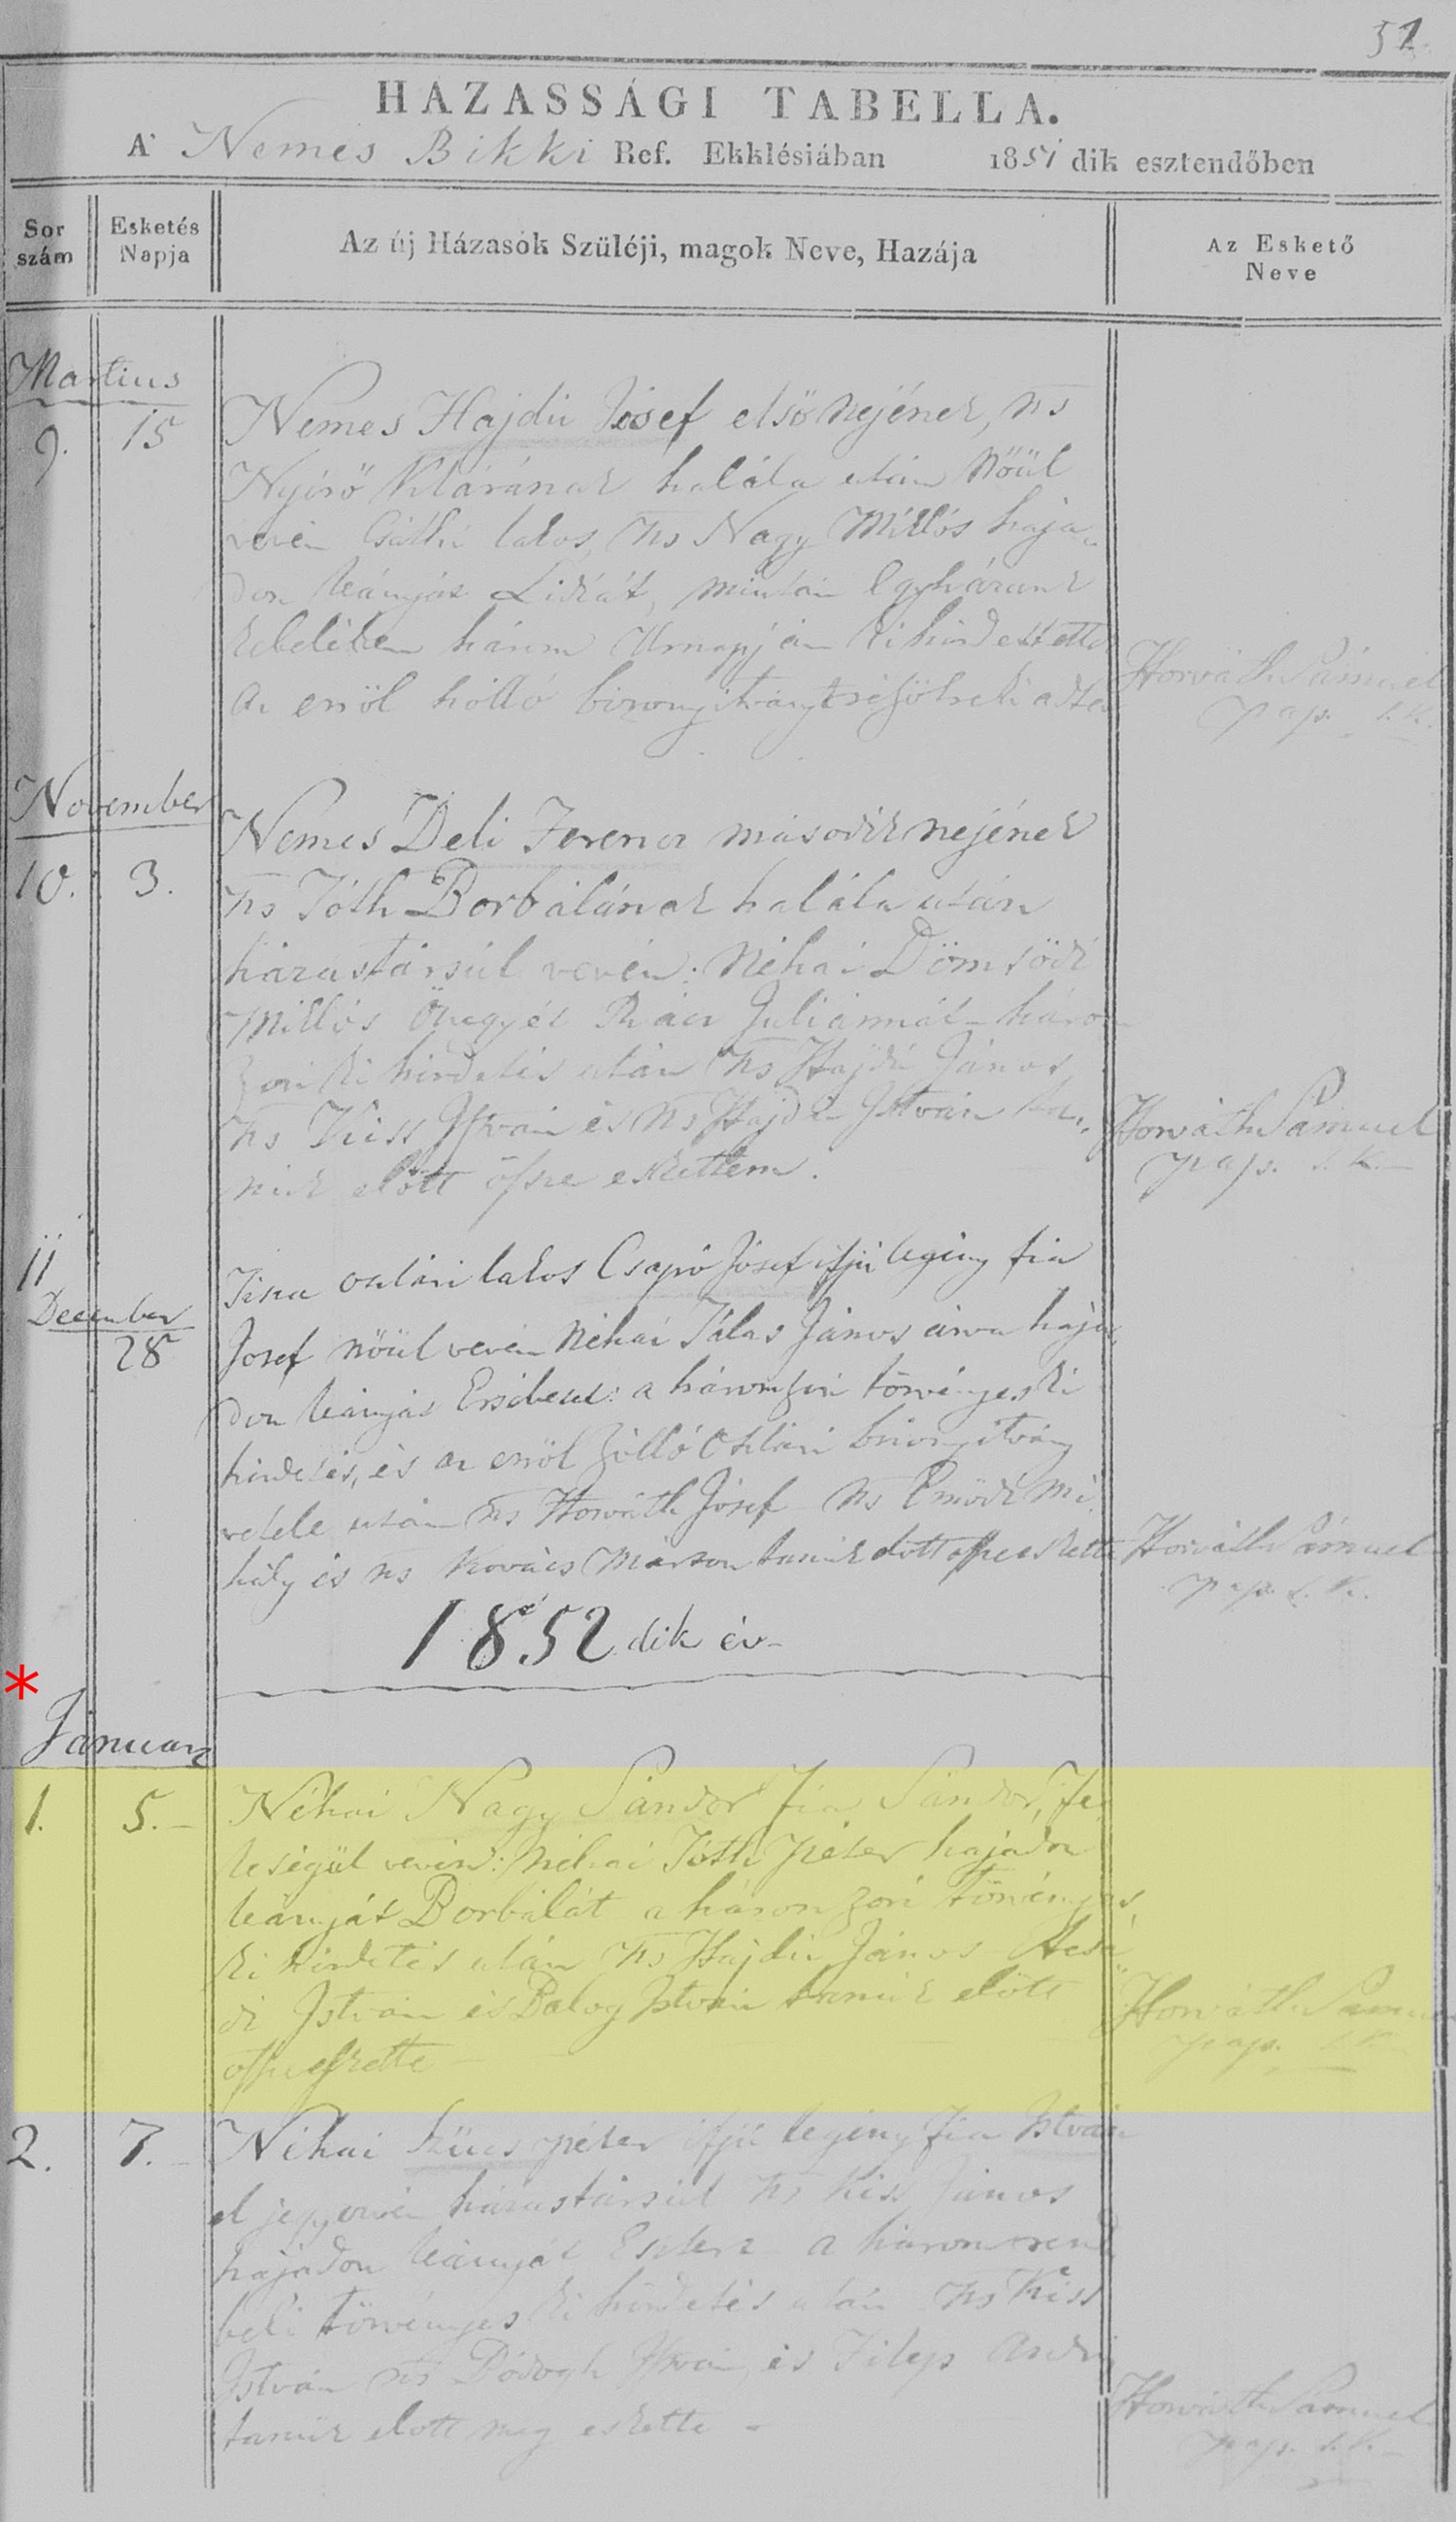 51
HÁZASSÁGI TABELLA.
A' Nemes Bikki Ref. Ekklésiában 1851 dik esztendőben
Sor szám
Esketés Napja
Az új Házasok Szüléji, magok Neve, Hazája
Az Eskető Neve
Martius
9. 15
Nemes Hajdu Jósef első nejének, ns
Nyírő Klárának halála után Nőül
vevén lakos, ns Nagy Miklós haja„
don leányát Lidiát, miután Egyházunk
kebelében három Urnapján kihirdettette
Az erről bizonyítványt
Horváth Sámuel
pap. s.k.
November
10. 3.
Nemes Deli Ferencz második nejének
ns Tóth Borbálának halála után
házastársúl vevén: Néhai Dömsödi
Miklós Özvegyét Rácz Juliánnát három
szori ki hirdetés után ns Hajdú János,
ns Kiss István és ns Hajdu István ta„
núk előtt össze eskettem.
Horváth Sámuel
pap. s.k.
11
December
28
Tisza oszlári lakos Csapó Jósef ifjú legény fia
Josef nőül vevén Néhai Tálas János árva haja„
don leányát Ersébetet: a háromszori törvényes ki
hirdetés, és az erről szólló Oszlári bizonyítvány
vétele után ns Horváth Jósef ns Emődi Mi„
hály és ns Kovács Márton tanúk előtt össze eskette
Horváth Sámuel
pap. s.k.
1852 dik év
*
Januar
1. 5.
Néhai Nagy Sándor fia Sándor, fe„
leségül vevén: néhai Tóth Péter hajadon
leányát Borbálát a háromszori törvényes
ki hirdetés után ns Hajdú János
di István és Balog István tanúk előtt
össze eskette
Horváth Sámuel
pap. s.k.
2. 7.
Néhai Szücs Péter ifjú legény fia István
el jegyezvén házastársúl ns Kiss János
hajadon leányát Esztert a három rend
beli törvényes ki hirdetés után ns Kiss
István ns Bódogh István és Filep Andr
tanúk előtt meg eskette
Horváth Sámuel
pap. s.k.